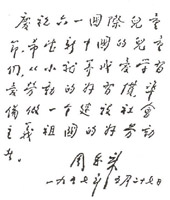 庆祝六一国际儿童
节，希望新中国的儿童
们，从小就养成爱学习
爱劳动的好习惯，准
备做一个建设社会
主义祖国的好劳动
者。
一九五七年五月二十七日